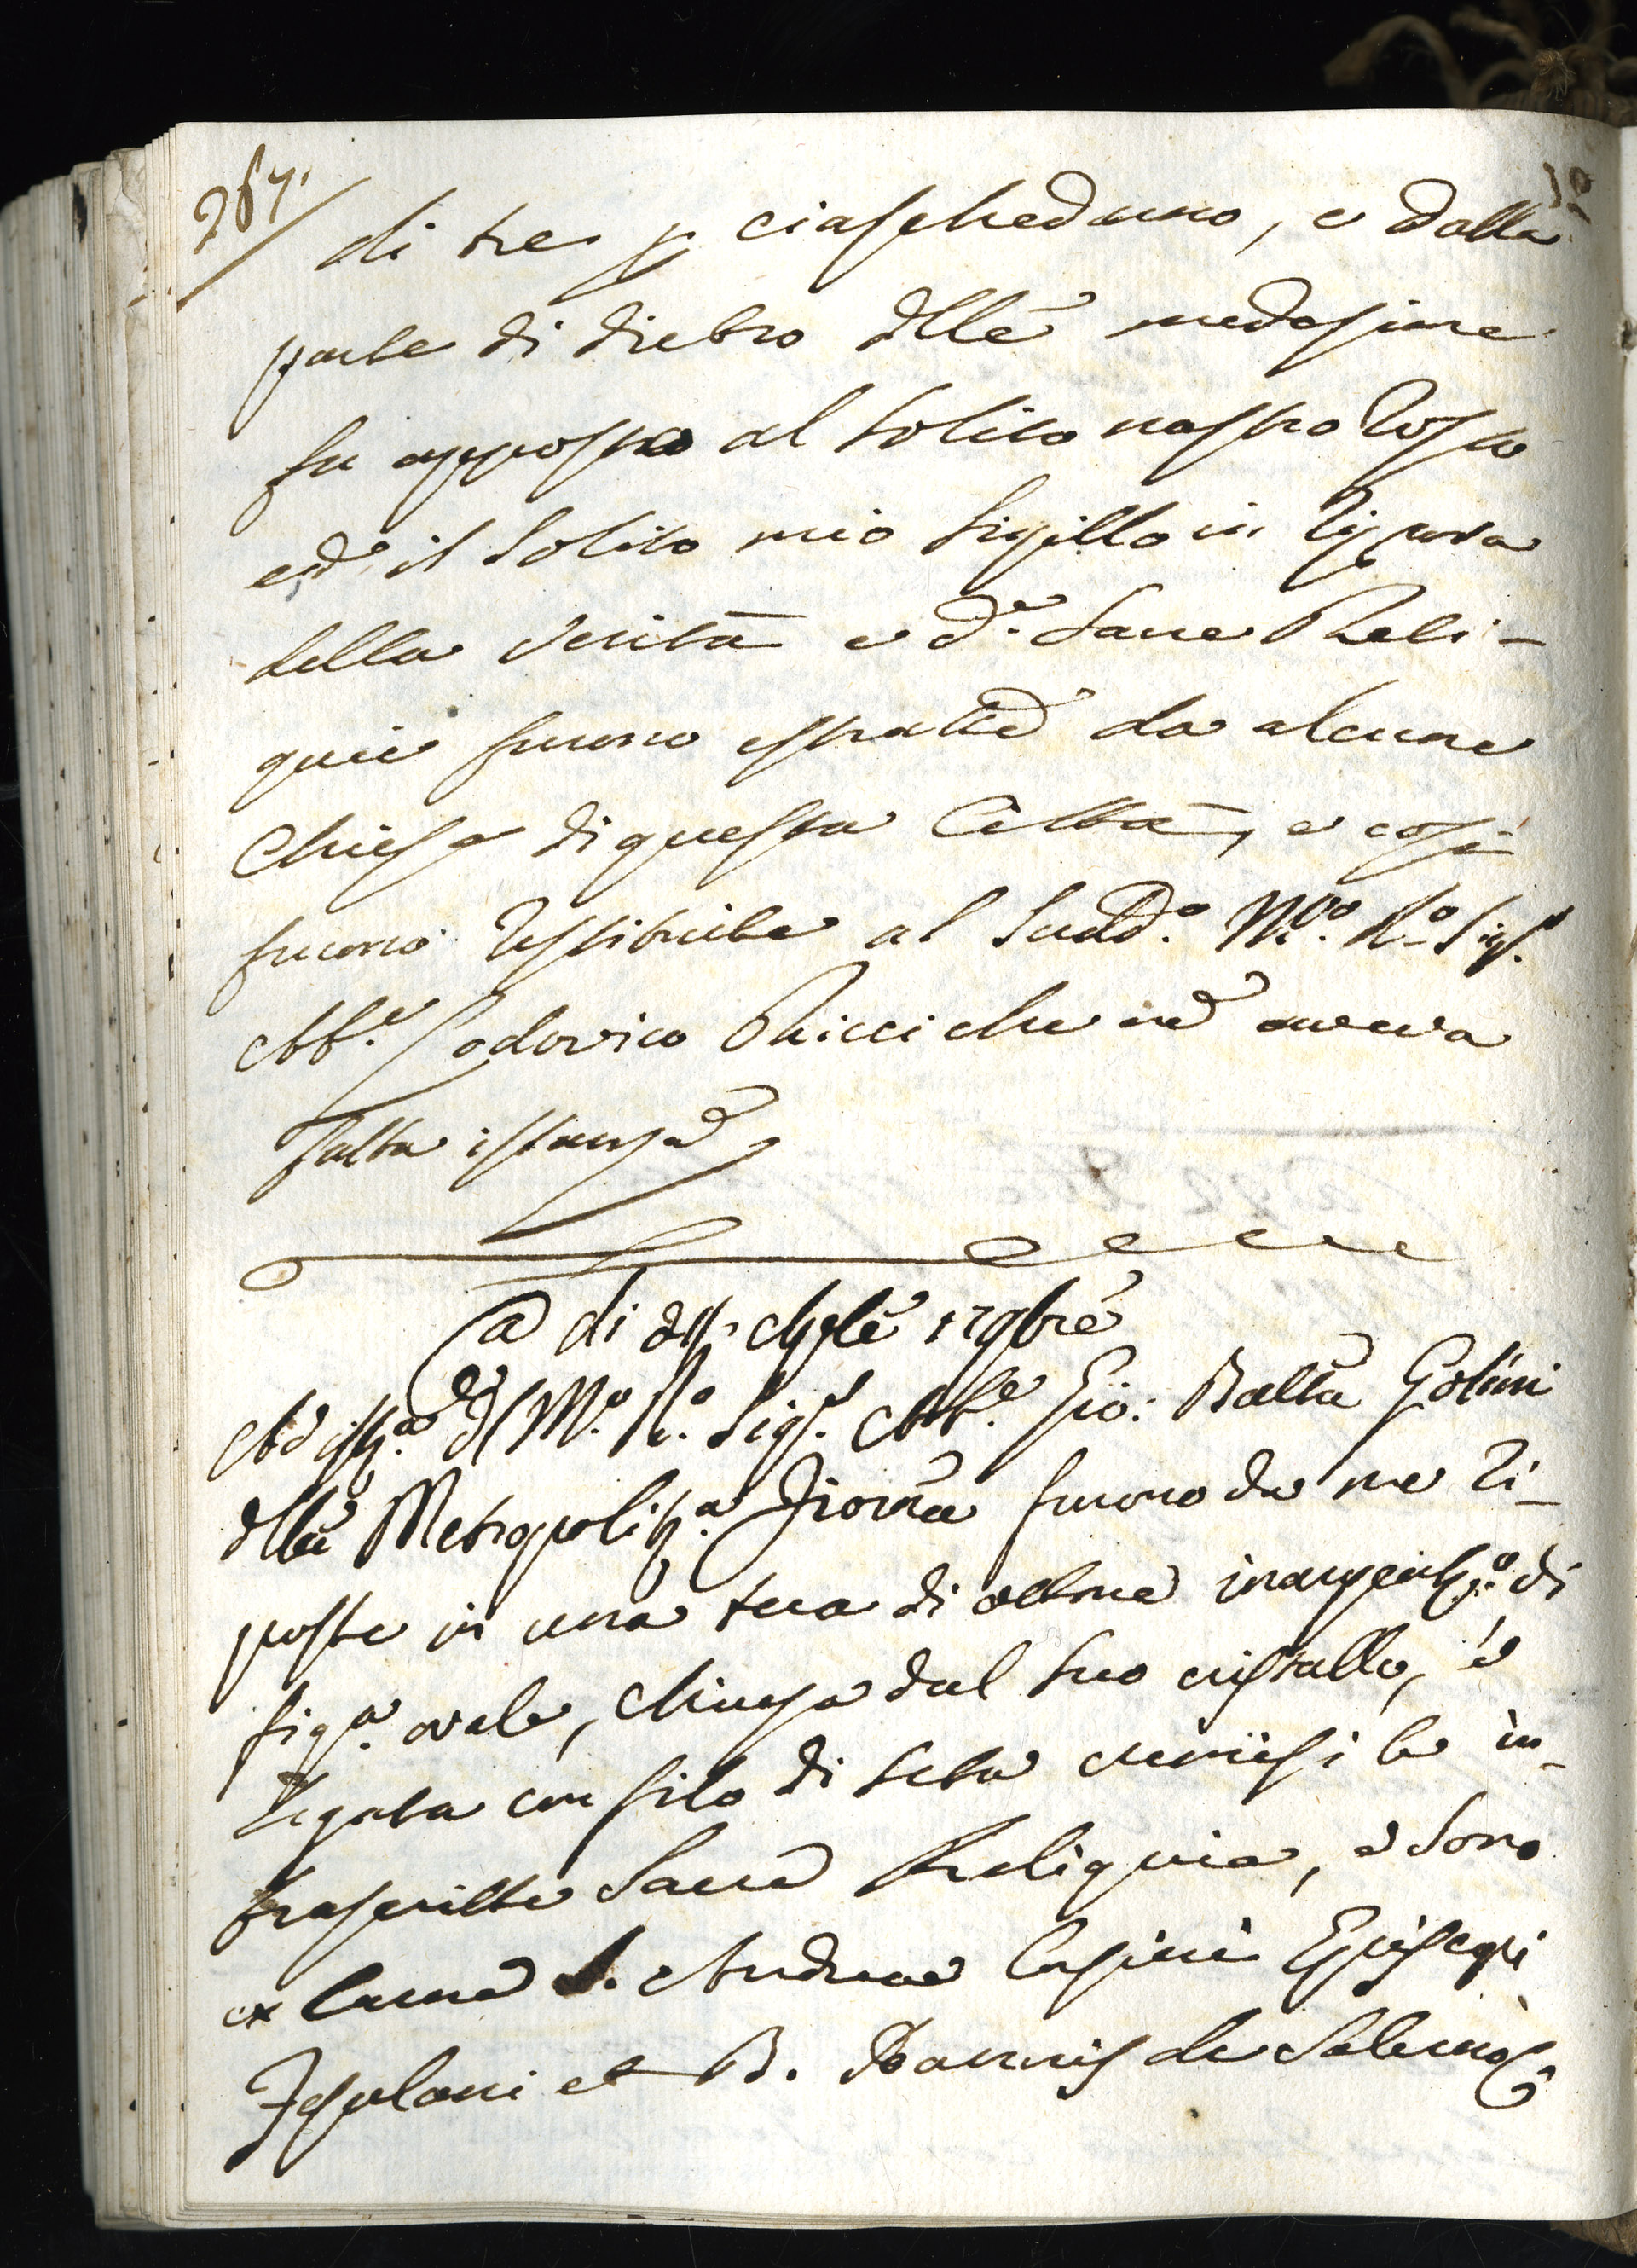 267.
di tre p ciascheduno, e dalla
parte di dietro dlle medesime
fu apposto al solito nastro rosso
ed il solito mio sigillo in ripruova
della verità e d.e Sacre Reli-
quie furono estratte da alcune
Chiese di questa Città, e così
furono restituite al sudd.o M.o R.o Sig.r
Ab.e Lodovico Ricci che ne aveva
fatta istanza
A di d.o
Ad ist.a dl M.o R.o Sig.r Ab.e Gio: Batta Golini
dlla Metropolit.a Fior.na furono da me ri-
poste in una teca di ottone inargent.o di
fig.a ovale, chiusa dal suo cristallo, e
legata con filo di seta cremisi le in-
frascritte Sacre Reliquie, e sono
ex Carne S. Andreae Corsini Episcopi
Fesulani et B. Joannis de Salerno